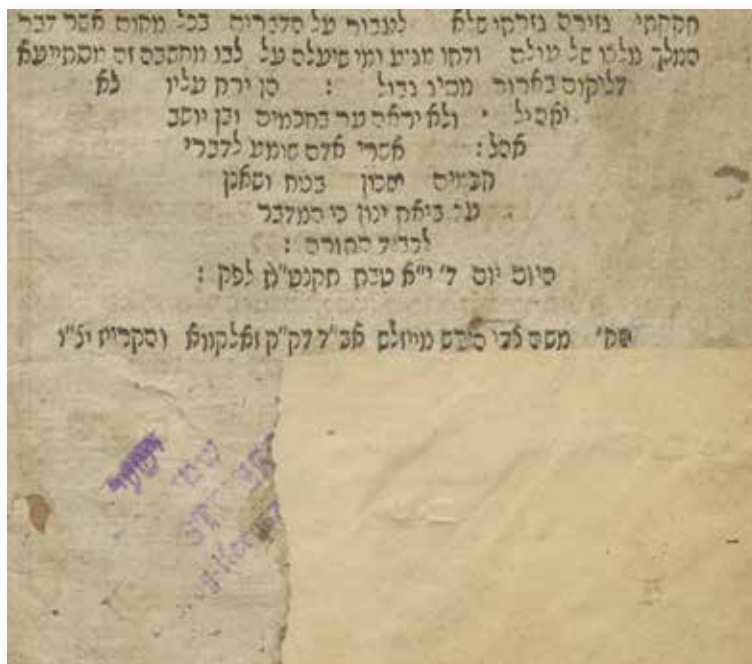 חקקתי גזירה גזרתי שלא לעבור על הדברים בכל מקום אשר דבר
המלך מלכו של עולם ודתו מגיע ומי שיעלה על לבו מחשבה זה מסתייעא
דליקום בארור גדול : הן ירח עליו לא
יאהיל י ולא יראה ער בחכמים ובן יושב
אהל : אשרי אדם שומע לדברי
חכמים ישכון בטח ושאנן
עד ביאת ינון כי המדבר
לכבוד התורה :
היום יום ד' י"א טבת לפק :
משה צבי הירש מייזלש אב"ד דק"ק זאלקווא והקריה יצ"ו